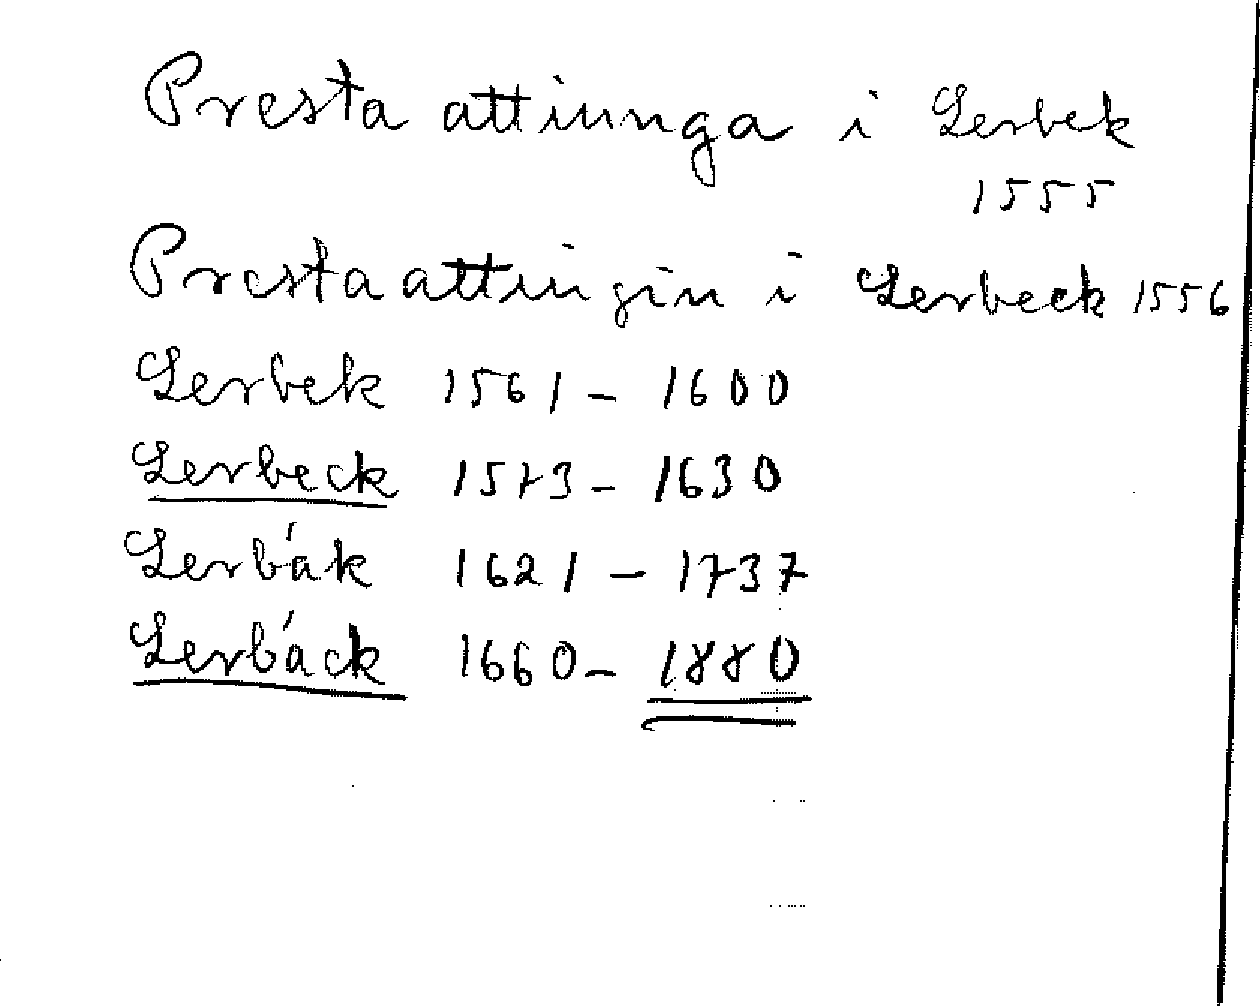 Presta attiunga i Lerbek
1555
Presta attiingin i Lerbeck 1556
Lerbek 1561 - 1600
Lerbeck 1573 - 1630
Lerbäk 1621 - 1737
Lerbäck 1660 - 1880